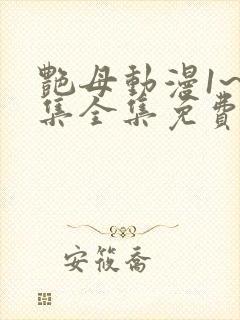 艷母動漫1~
集全集免費
安筱喬